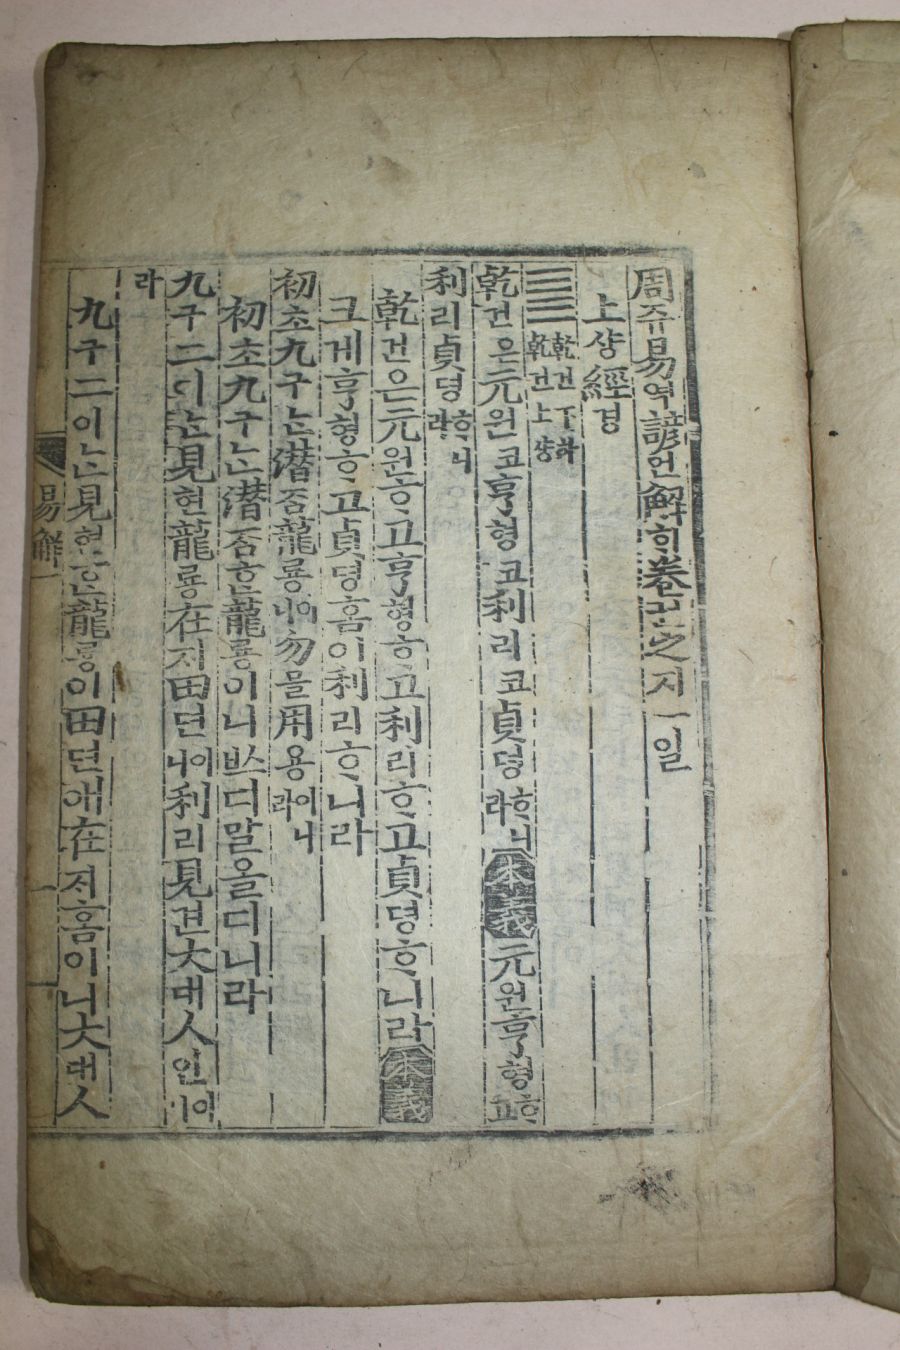 周쥬易역諺언解ᄒᆡ卷권之지一일
上샹經경
乾건下하
乾건上샹
乾건은元원코亨형코利리코貞뎡ᄒᆞ니라本義元원亨형ᄒᆞ고
利리貞뎡ᄒᆞ니라
乾건은元원ᄒᆞ고亨형ᄒᆞ고利리ᄒᆞ고貞뎡ᄒᆞ니라本義
크게亨형ᄒᆞ고貞뎡홈이利리ᄒᆞ니라
初초九구ᄂᆞᆫ潛ᄌᆞᆷ龍룡이니勿믈用용이니라
初초九구ᄂᆞᆫ潛ᄌᆞᆷᄒᆞᆫ龍룡이니ᄡᅳ디말올디니라
九구二이ᄂᆞᆫ見현龍룡在ᄌᆡ田뎐이니利리見견大대人인이니
라
九구二이ᄂᆞᆫ見현ᄒᆞᆫ龍룡이田뎐애在ᄌᆡ홈이니大대人
易解一